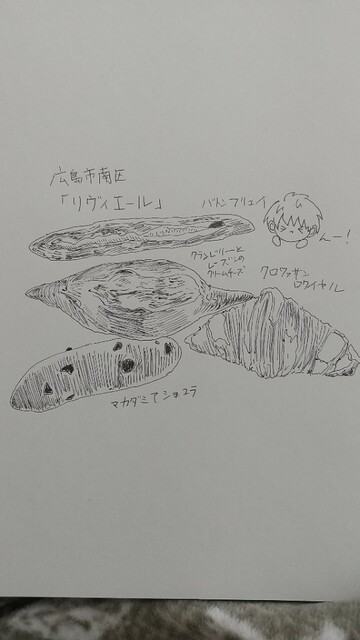 広島市南区
「リヴィエール」
バトンフリュイ
んー!
クランベリーと
レーズンの
クリームチーズ
クロワッサン
ロワイヤル
マカダミアショコラ